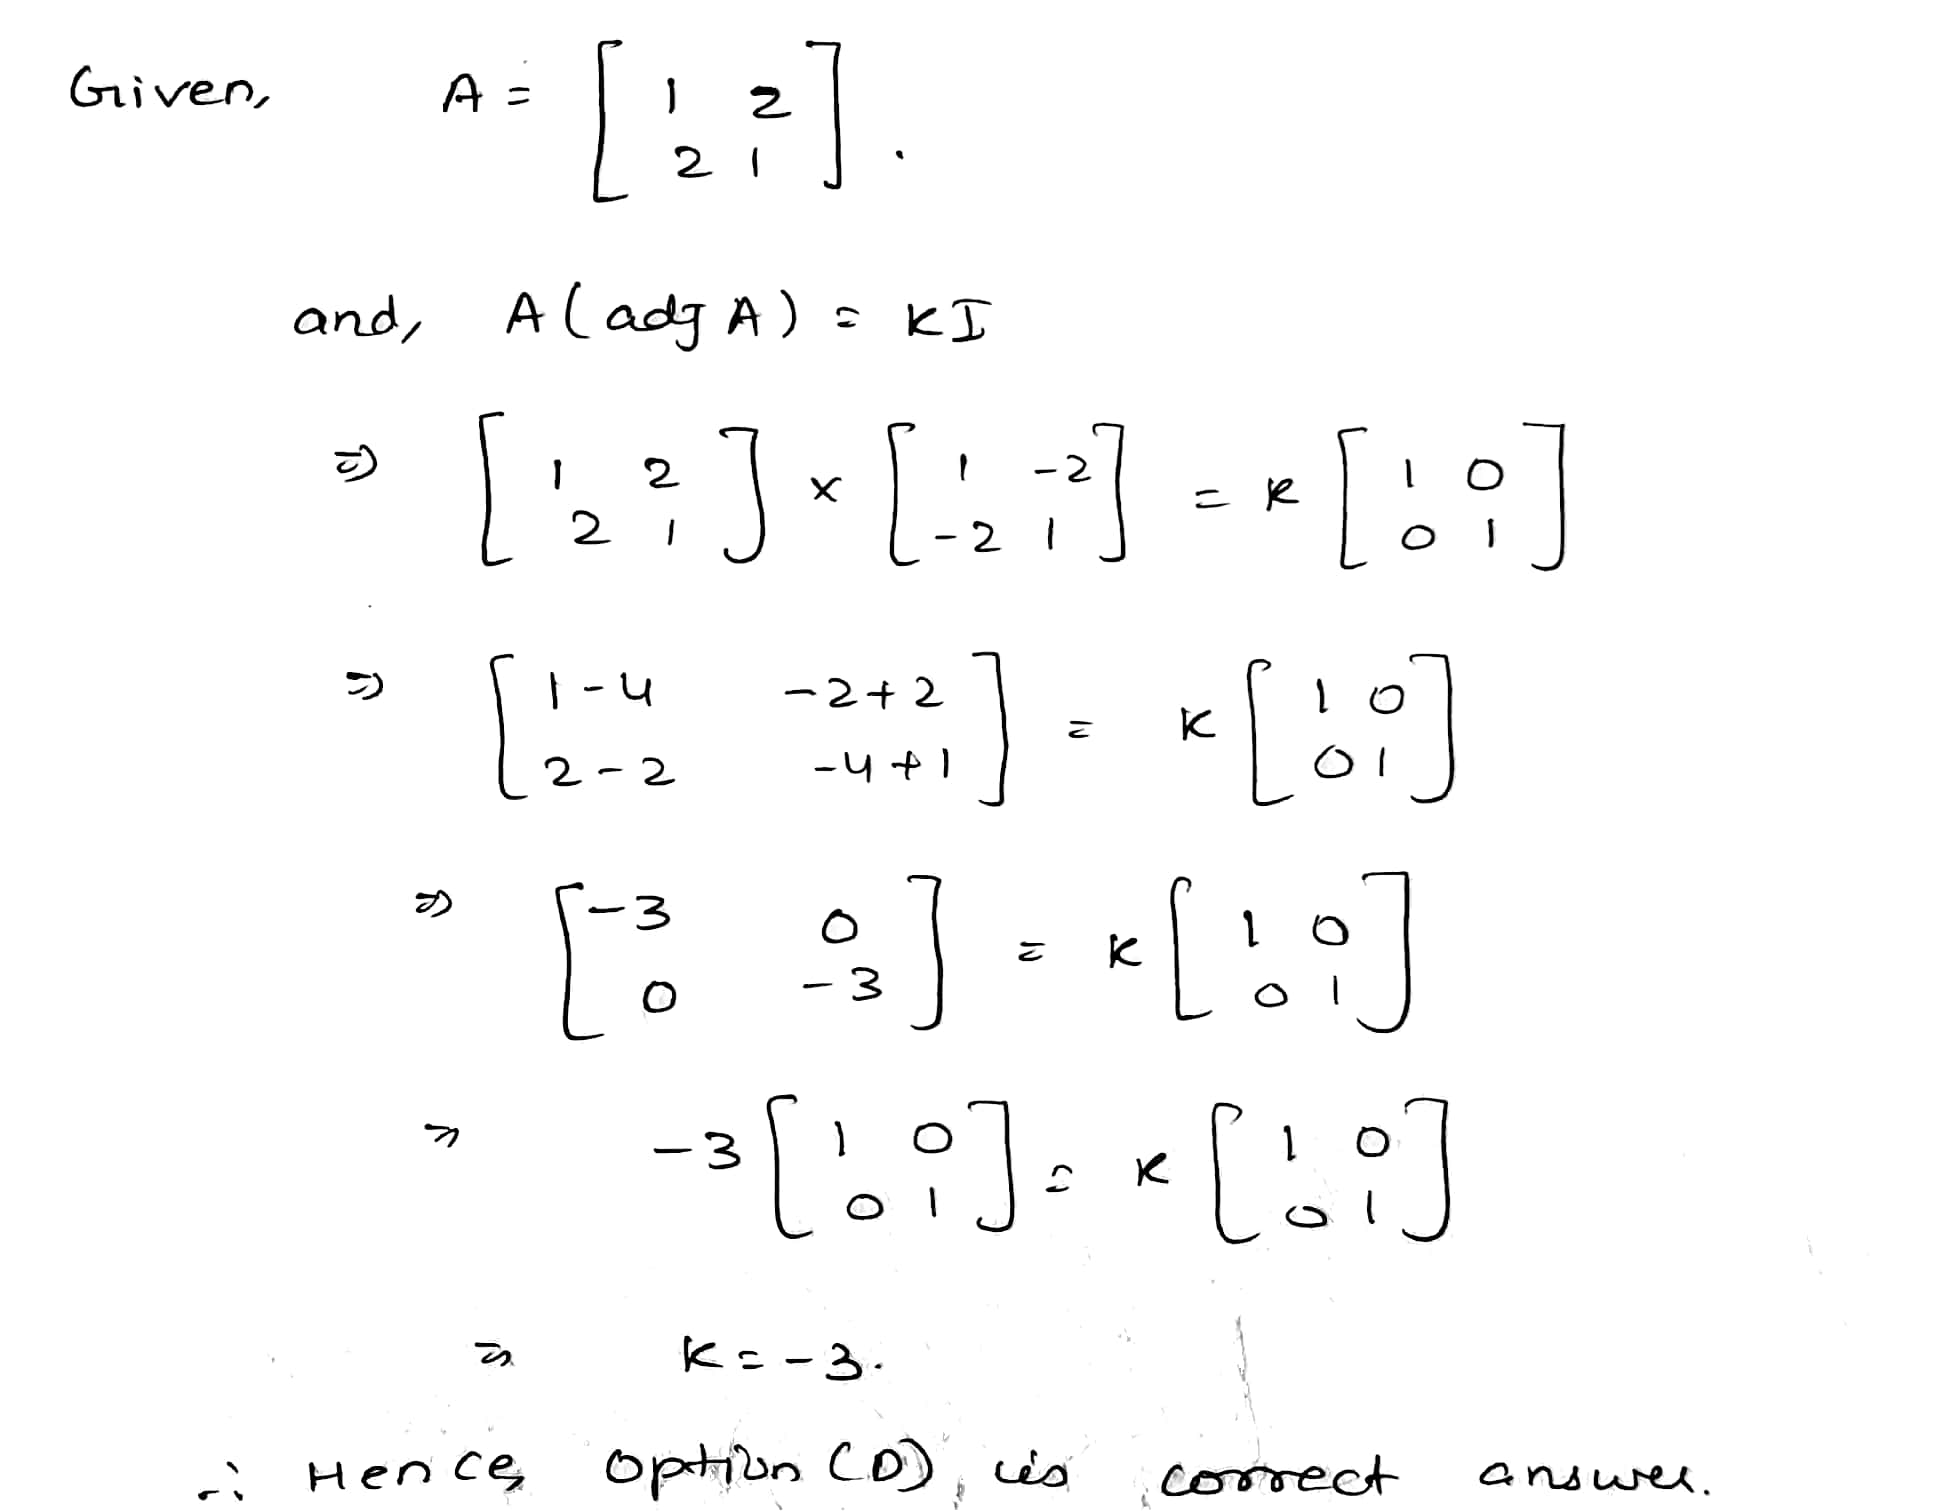 Given, A = [ 1 2 ; 2 1 ] .
and, A ( adj A ) = KI
⇒ [ 1 2 ; 2 1 ] × [ 1 -2 ; -2 1 ] = K [ 1 0 ; 0 1 ]
⇒ [ 1-4 -2+2 ; 2-2 -4+1 ] = K [ 1 0 ; 0 1 ]
⇒ [ -3 0 ; 0 -3 ] = K [ 1 0 ; 0 1 ]
⇒ -3 [ 1 0 ; 0 1 ] = K [ 1 0 ; 0 1 ]
⇒ K = -3.
∴ Hence, option (D) is correct answer.